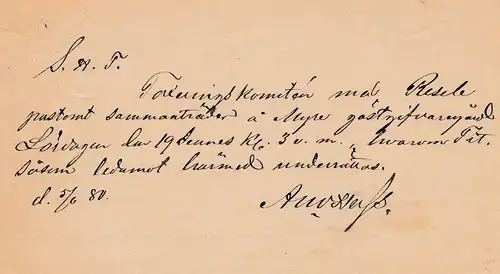 S. H. T.
Torurings komitén med Resele
pastorat sammanträder å Myre gästgifvaregård
Lördagen den 19 dennes Kl. 3 e. m., hvarom Tit.
såsom ledamot härmed underrättas.
d. 5/6 80.